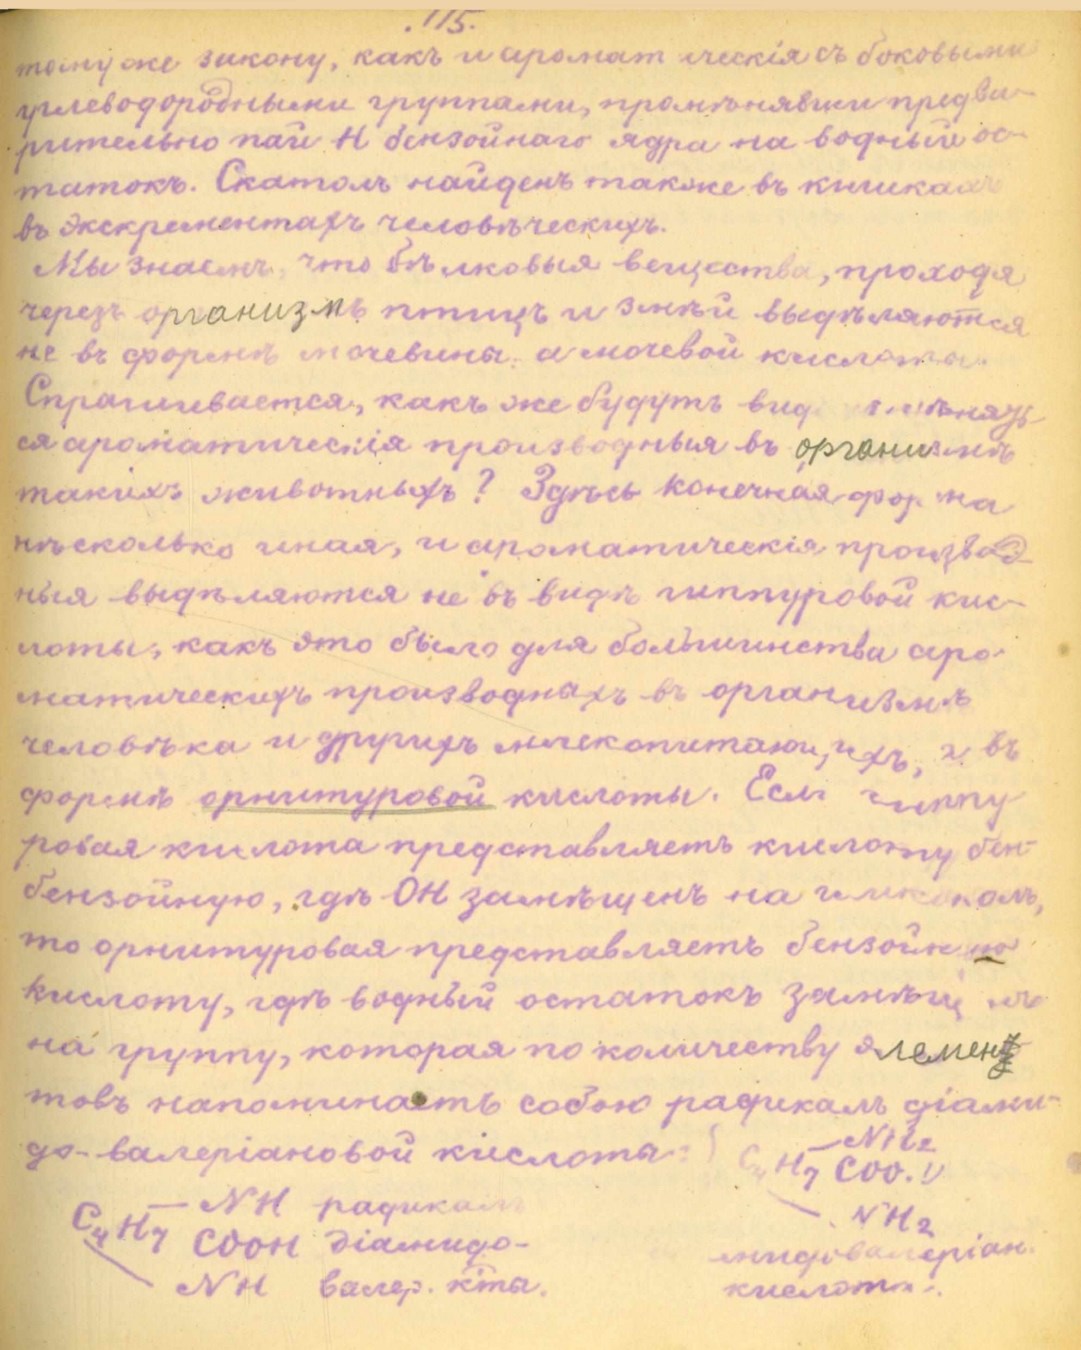 115.
тому же закону, какъ и аромат ическія съ боковыми
углеводородными группами, промѣнявши предва-
рительно пай Н бензойнаго ядра на водный ос-
татокъ. Скатолъ найденъ также въ кишкахъ
въ экскрементахъ человѣческихъ.
Мы знаемъ, что бѣлковыя вещества, проходя
черезъ организмъ птицъ и змѣй выдѣляются
не въ формѣ мочевины а мочевой кислоты.
Спрашивается, какъ же будутъ
ся ароматическія производныя въ организмѣ
такихъ животныхъ? Здѣсь конечная форма
нѣсколько иная, и ароматическія производ-
ныя выдѣляются не въ видѣ гиппуровой кис-
лоты, какъ это было для большинства аро-
матическихъ производныхъ въ организмѣ
человѣка и другихъ млекопитающихъ, а въ
формѣ орнитуровой кислоты. Если гиппу
ровая кислота представляетъ кислоту бен-
бензойную, гдѣ ОН замѣщенъ на гликоколъ,
то орнитуровая представляетъ бензойную
кислоту, гдѣ водный остатокъ замѣщенъ
на группу, которая по количеству элемен
товъ напоминаетъ собою радикалъ діами-
до-валеріановой кислоты:
C4H7 —NH2 COO. —NH2
C4H7 —NH COOH —NH
радикалъ
діамидо-
валер. к'ты.
мидовалеріан.
кислота.